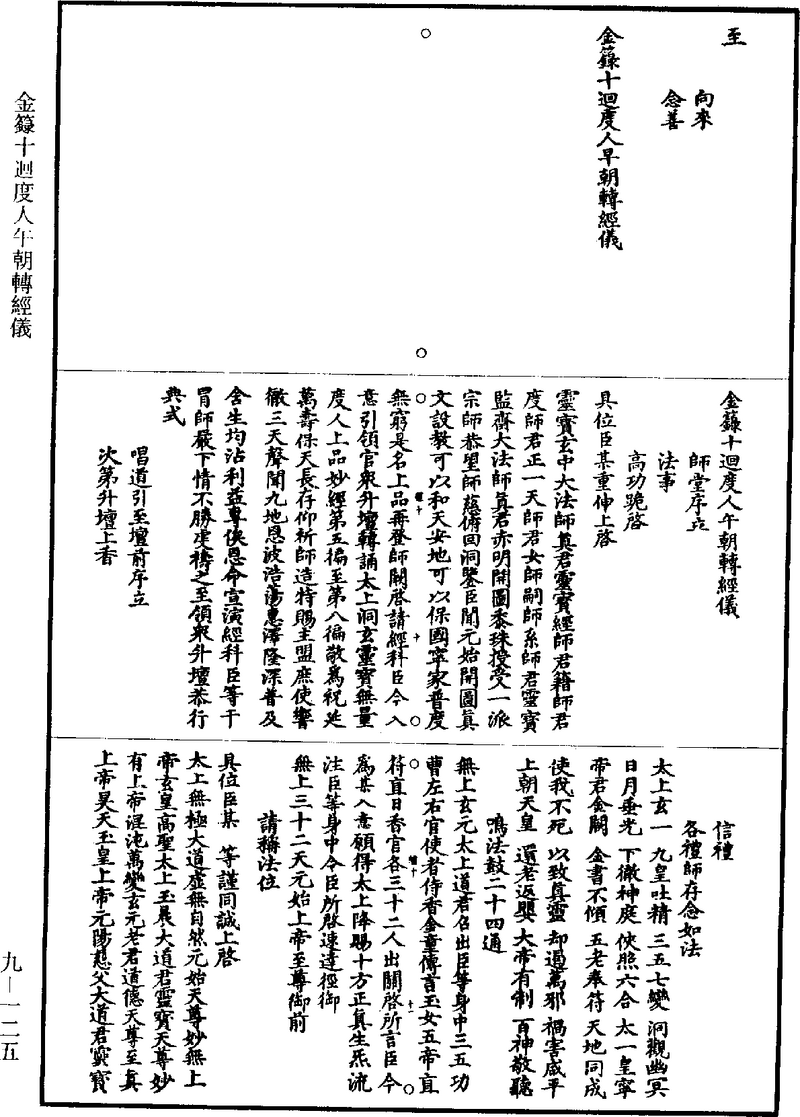 至
向來
念善
金籙十迴度人早朝轉經儀
金籙十迴度人午朝轉經儀
師堂序立
法事
高功跪啓
具位臣某重伸上啓
靈寶玄中大法師眞君靈寶經師君籍師君
度師君正一天師君女師嗣師系師君靈寶
監齋大法師眞君赤明開圖黍珠授受一派
宗師恭望師慈俯回洞鑒臣聞元始開圖眞
文設教可以和天安地可以保國寧家普度
無窮是名上品再登師關啓請經科臣今入
意引領官衆升壇轉誦太上洞玄靈寶無量
度人上品妙經第五徧至第八徧敬爲祝延
萬壽保天長存仰祈師造特賜主盟庶使響
徹三天聲聞九地恩波浩蕩惠澤隆深普及
含生均沾利益專俟恩命宣演經科臣等干
冒師嚴下情不勝虔禱之至領衆升壇恭行
典式
唱道引至壇前序立
次第升壇上香
信禮
各禮師存念如法
太上玄一 九皇吐精 三五七變 洞觀幽冥
日月垂光 下徹神庭 使照六合 太一皇寧
帝君金闕 金書不傾 五老奉符 天地同成
使我不死 以致眞靈 却遏萬邪 禍害咸平
上朝天皇 還老返嬰 大帝有制 百神敬聽
鳴法鼓二十四通
無上玄元太上道君召出臣等身中三五功
曹左右官使者侍香金童傳言玉女五帝直
符直日香官各三十二人出關啓所言臣今
爲某入意願得太上降賜十方正眞生炁流
注臣等身中令臣所啓速達徑御
無上三十二天元始上帝至尊御前
請稱法位
具位臣某 等謹同誠上啓
太上無極大道虛無自然元始天尊妙無上
帝玄皇高聖太上玉晨大道君靈寶天尊妙
有上帝混沌萬變玄元老君道德天尊至眞
上帝昊天玉皇上帝元陽慈父大道君窈窈
金籙十迴度人午朝轉經儀
九—一二五